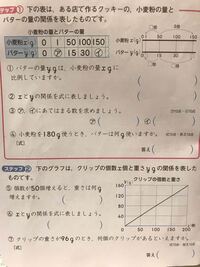 テップ① 下の表は、ある店で作るクッキーの、小麦粉の量と
バターの量の関係を表したものです。
小麦粉の量とバターの量
小麦粉xg 0 1 50 100 150
バターyg 0 ㋐ 15 30 ㋑
小麦粉xg
バターyg
① バターの量ygは、小麦粉の量xgに
比例していますか。
② xとyの関係を式に表しましょう。
③ ㋐、㋑にあてはまる数を求めましょう。
㋐( ) ㋑( )
④ 小麦粉を180g使うとき、バターは何g使いますか。
(式)
答え( )
ステップ② 下のグラフは、クリップの個数x個と重さygの関係を表したものです。
⑤ 個数が50個増えると、重さは何g
増えますか。
⑥ xとyの関係を式に表しましょう。
⑦ クリップの重さが96gのとき、何個のクリップがあるといえますか。
(式)
答え( )
クリップの個数と重さ
(g)
160
120
80
40
0 50 100 150 200 (個)